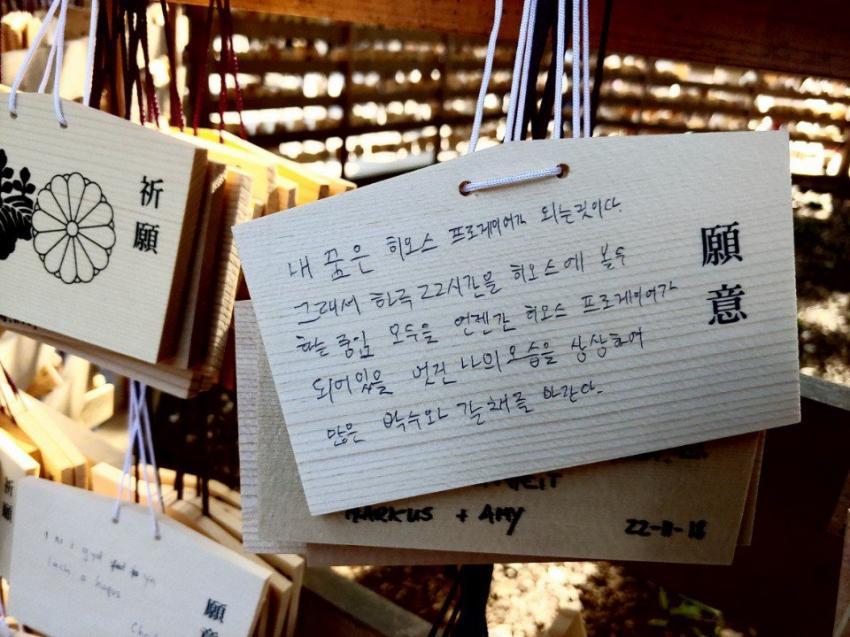 祈願
願意
내 꿈은 히오스 프로게이머가 되는것이다.
그래서 하루 22시간을 히오스에
모두를 언젠간 히오스 프로게이머가
되어있을 멋진 나의 모습을 상상하며
많은 박수와 갈채를 바란다.
MARKUS + AMY
22-11-18
祈願
願意